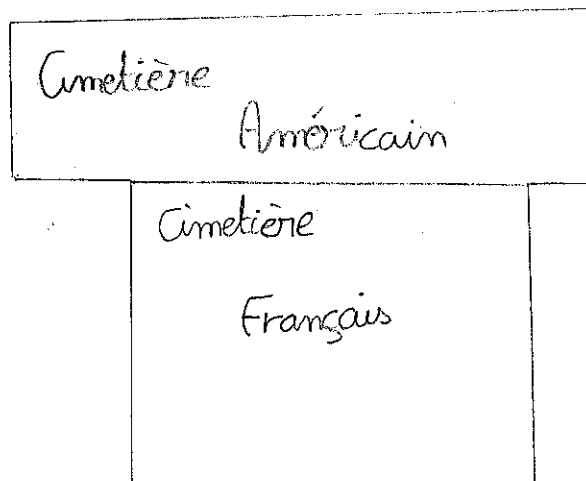 Cimetière
Américain
Cimetière
Français